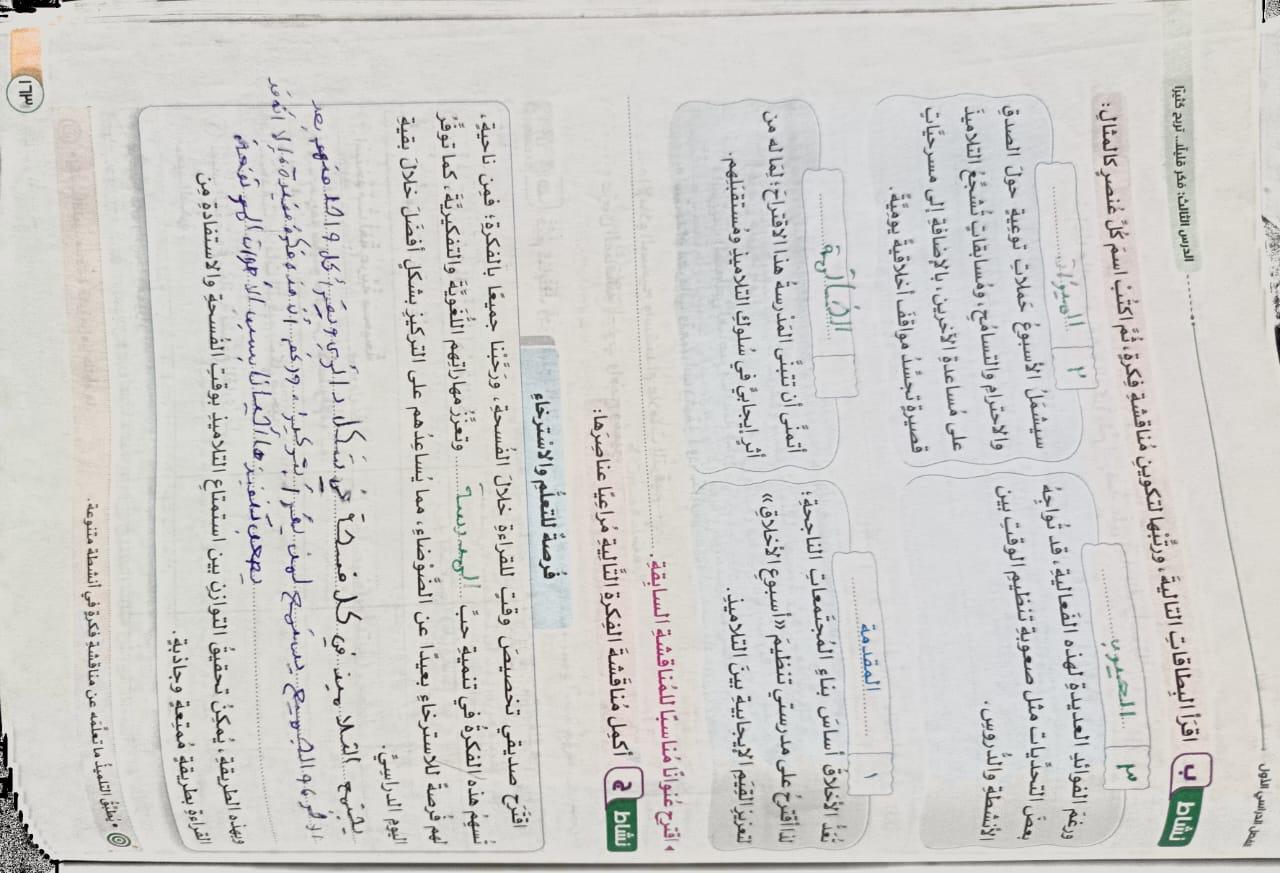 الفصل الدراسي الأول
الدرس الثالث: فكر قليلًا.. تربح كثيرًا
نشاط ب اقرأ البطاقات التالية، ورتبها لتكوين مناقشة فكرة، ثم اكتب اسم كل عنصر كالمثال:
٣ العيوب
ورغم الفوائد العديدة لهذه الفعالية، قد تواجه
بعض التحديات مثل صعوبة تنظيم الوقت بين
الأنشطة والدروس.
٢ الميزات
سيشمل الأسبوع حملات توعية حول الصدق
والاحترام والتسامح، ومسابقات تشجع التلاميذ
على مساعدة الآخرين، بالإضافة إلى مسرحيات
قصيرة تجسد مواقف أخلاقية يومية.
١ المقدمة
تعد الأخلاق أساس بناء المجتمعات الناجحة؛
لذا أقترح على مدرستي تنظيم «أسبوع الأخلاق»
لتعزيز القيم الإيجابية بين التلاميذ.
أتمنى أن تتبنى المدرسة هذا الاقتراح؛ لما له من
أثر إيجابي في سلوك التلاميذ ومستقبلهم.
• اقترح عنوانًا مناسبًا للمناقشة السابقة.
نشاط ج أكمل مناقشة الفكرة التالية مراعيًا عناصرها:
فرصة للتعلم والاسترخاء
اقترح صديقي تخصيص وقت للقراءة خلال الفسحة، ورحبنا جميعًا بالفكرة؛ فمن ناحية،
تسهم هذه الفكرة في تنمية حب المدرسة وتعزز مهاراتهم اللغوية والتفكيرية، كما توفر
لهم فرصة للاسترخاء بعيدًا عن الضوضاء، مما يساعدهم على التركيز بشكل أفضل خلال بقية
اليوم الدراسي.
يجتمع التلاميذ في كل فسحة في شكل دائري ويقرأ كل واحد منهم بعد
الآخر والجميع يستمع لمن يقرأ بتركيز ورغم أن هذه فكرة مفيدة إلا أنه قد
يصعب تنفيذها أحيانًا بسبب الأصوات المرتفعة
وبهذه الطريقة، يمكن تحقيق التوازن بين استمتاع التلاميذ بوقت الفسحة والاستفادة من
القراءة بطريقة ممتعة وجاذبة.
• يطبق التلميذ ما تعلمه عن مناقشة فكرة في أنشطة متنوعة.
١٦٣